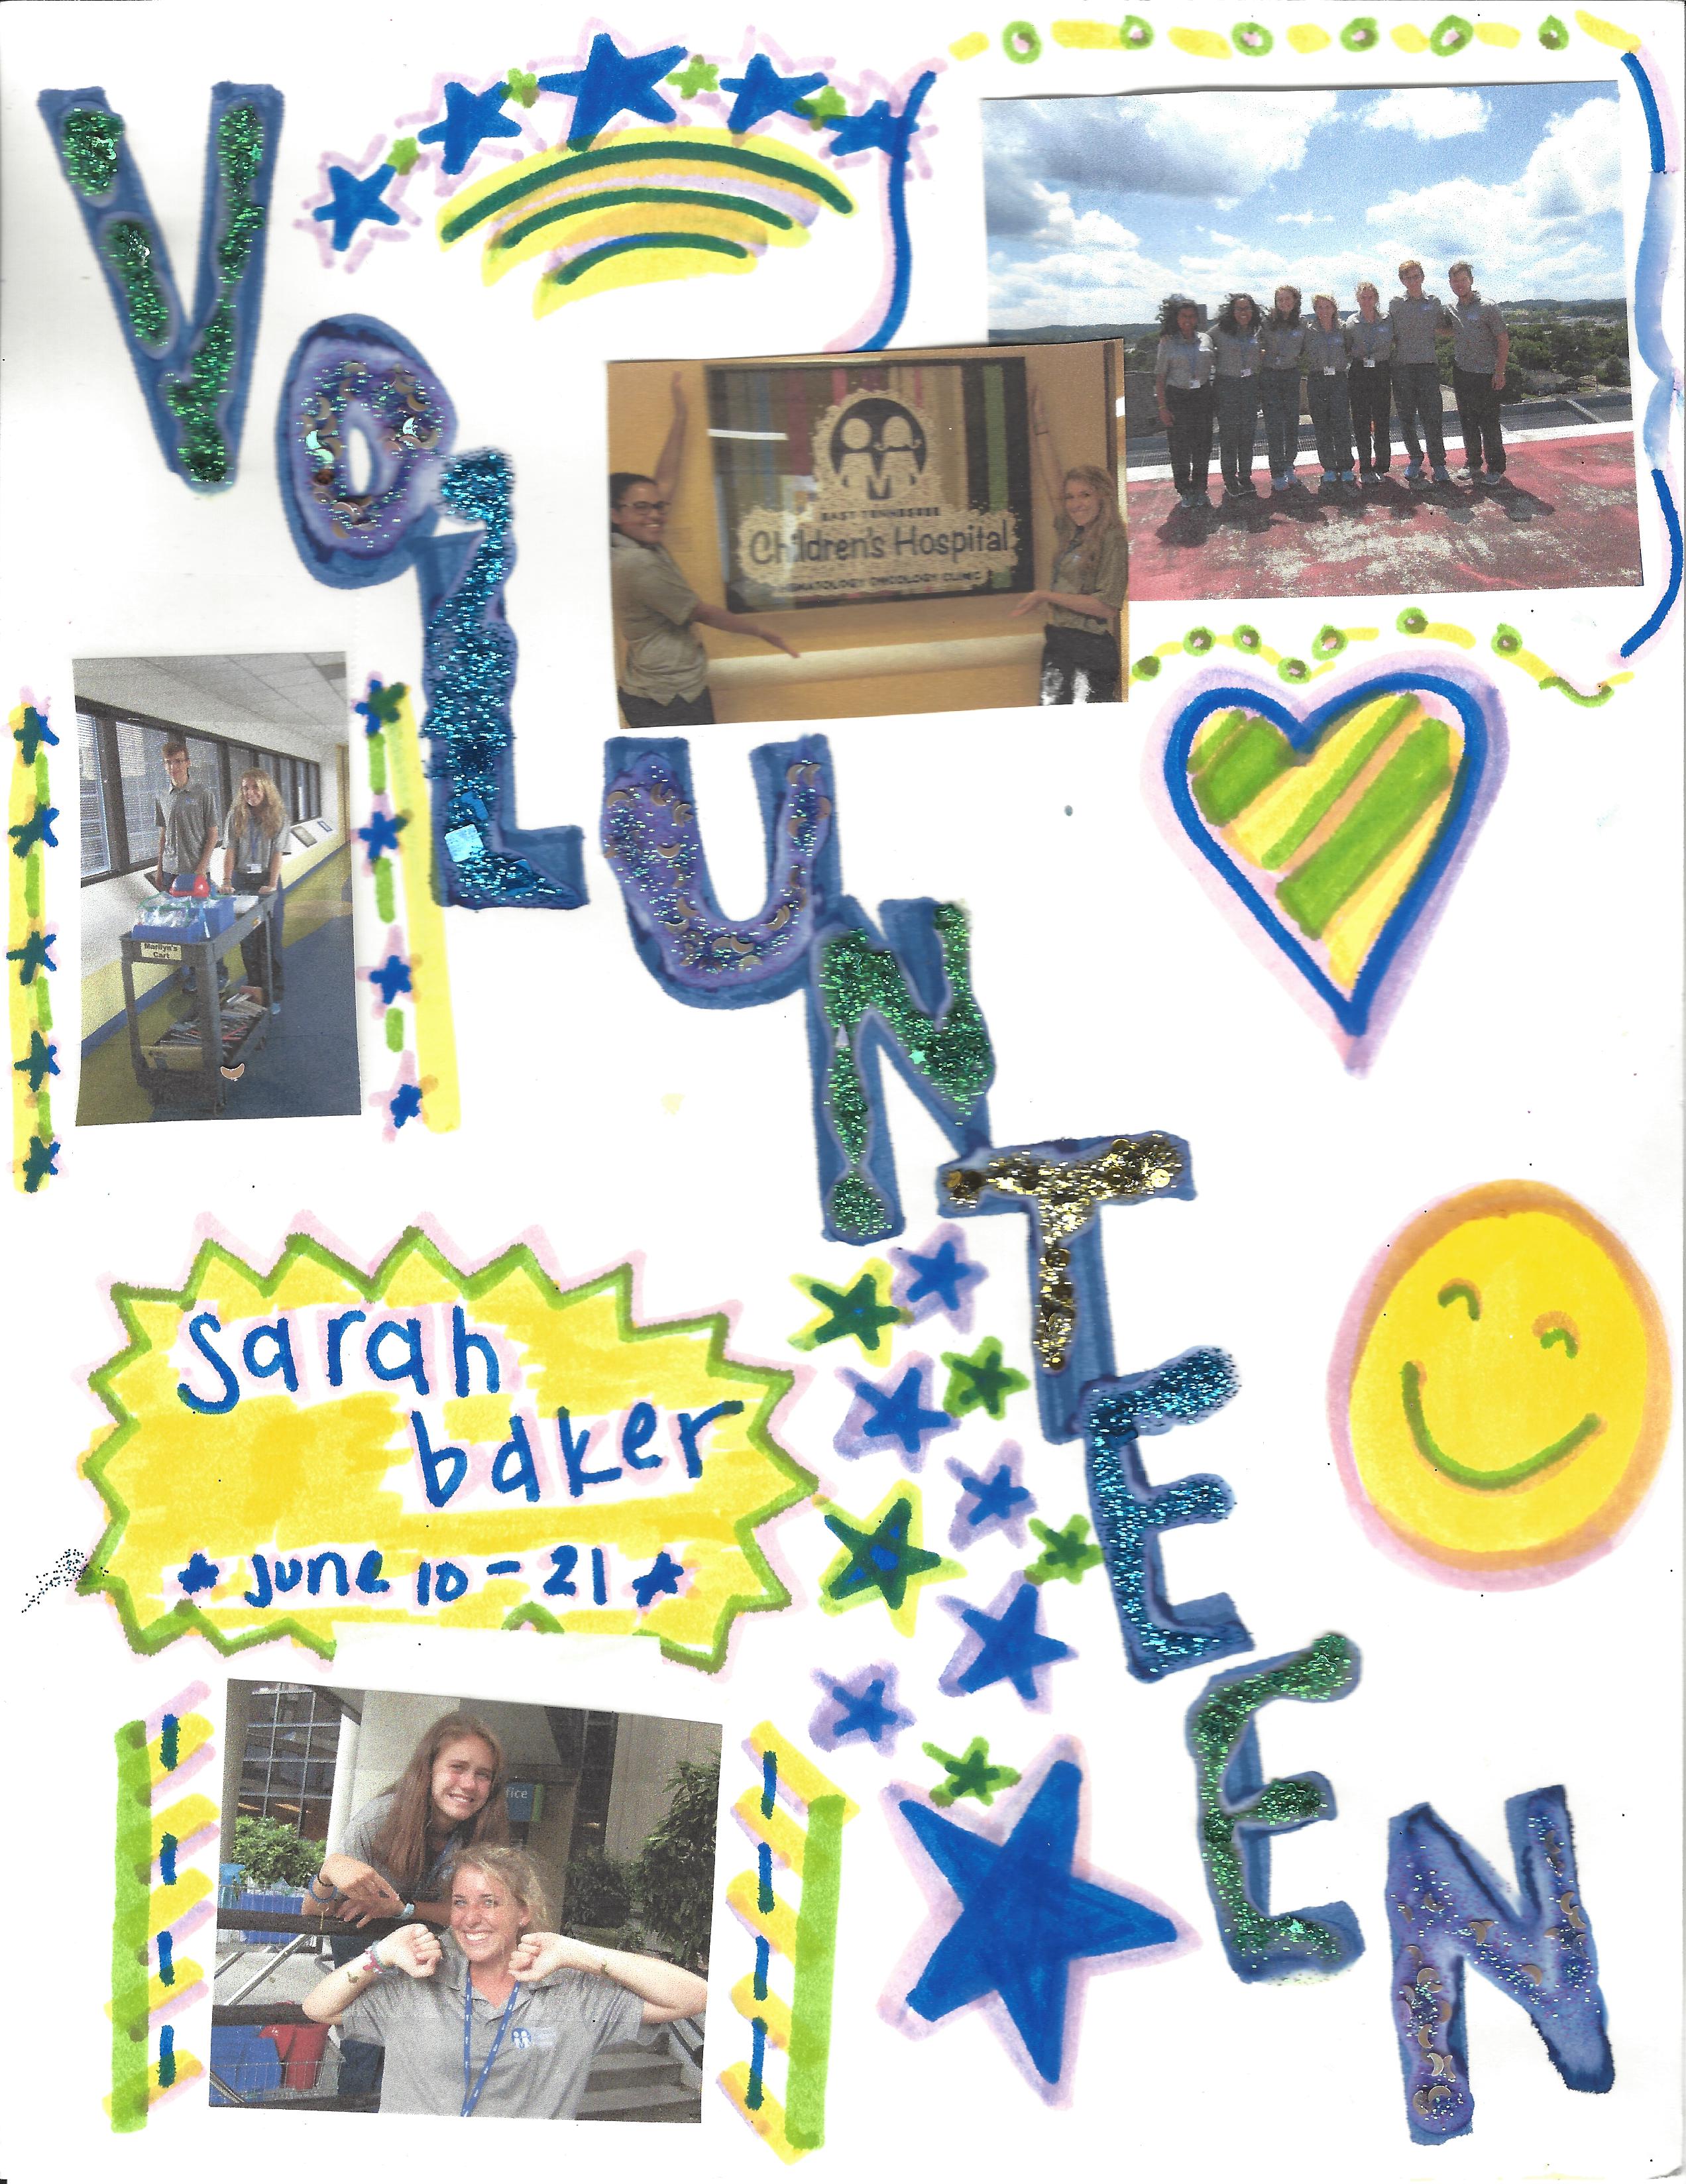 VOLUNTEEN
EAST TENNESSEE
Children's Hospital
HEMATOLOGY ONCOLOGY CLINIC
Marilyn's
Cart
sarah
baker
june 10 - 21
fice